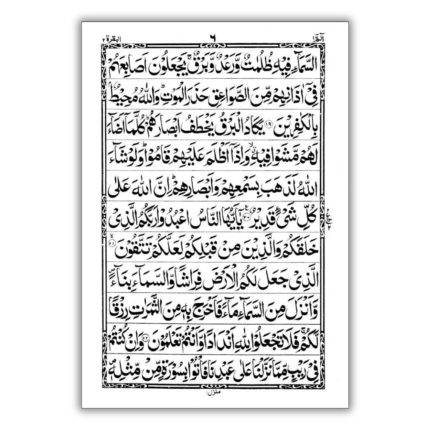 البقرة ٢
٦
الٓمّٓ ١
السَّمَآءِ فِيْهِ ظُلُمٰتٌ وَّرَعْدٌ وَّبَرْقٌ ۚ يَجْعَلُوْنَ اَصَابِعَهُمْ
فِيْٓ اٰذَانِهِمْ مِّنَ الصَّوَاعِقِ حَذَرَ الْمَوْتِ ؕ وَاللّٰهُ مُحِيْطٌۢ
بِالْكٰفِرِيْنَ ﴿۱۹﴾ يَكَادُ الْبَرْقُ يَخْطَفُ اَبْصَارَهُمْ ؕ كُلَّمَآ اَضَآءَ
لَهُمْ مَّشَوْا فِيْهِ ۙۗ وَاِذَآ اَظْلَمَ عَلَيْهِمْ قَامُوْا ؕ وَلَوْ شَآءَ
اللّٰهُ لَذَهَبَ بِسَمْعِهِمْ وَاَبْصَارِهِمْ ؕ اِنَّ اللّٰهَ عَلٰى
كُلِّ شَيْءٍ قَدِيْرٌ ﴿۲۰﴾ يٰٓاَيُّهَا النَّاسُ اعْبُدُوْا رَبَّكُمُ الَّذِيْ
خَلَقَكُمْ وَالَّذِيْنَ مِنْ قَبْلِكُمْ لَعَلَّكُمْ تَتَّقُوْنَ ﴿۲۱﴾
الَّذِيْ جَعَلَ لَكُمُ الْاَرْضَ فِرَاشًا وَّالسَّمَآءَ بِنَآءً ۪
وَّاَنْزَلَ مِنَ السَّمَآءِ مَآءً فَاَخْرَجَ بِهٖ مِنَ الثَّمَرٰتِ رِزْقًا
لَّكُمْ ۚ فَلَا تَجْعَلُوْا لِلّٰهِ اَنْدَادًا وَّاَنْتُمْ تَعْلَمُوْنَ ﴿۲۲﴾ وَاِنْ كُنْتُمْ
فِيْ رَيْبٍ مِّمَّا نَزَّلْنَا عَلٰى عَبْدِنَا فَاْتُوْا بِسُوْرَةٍ مِّنْ مِّثْلِهٖ ۪
منزل ١